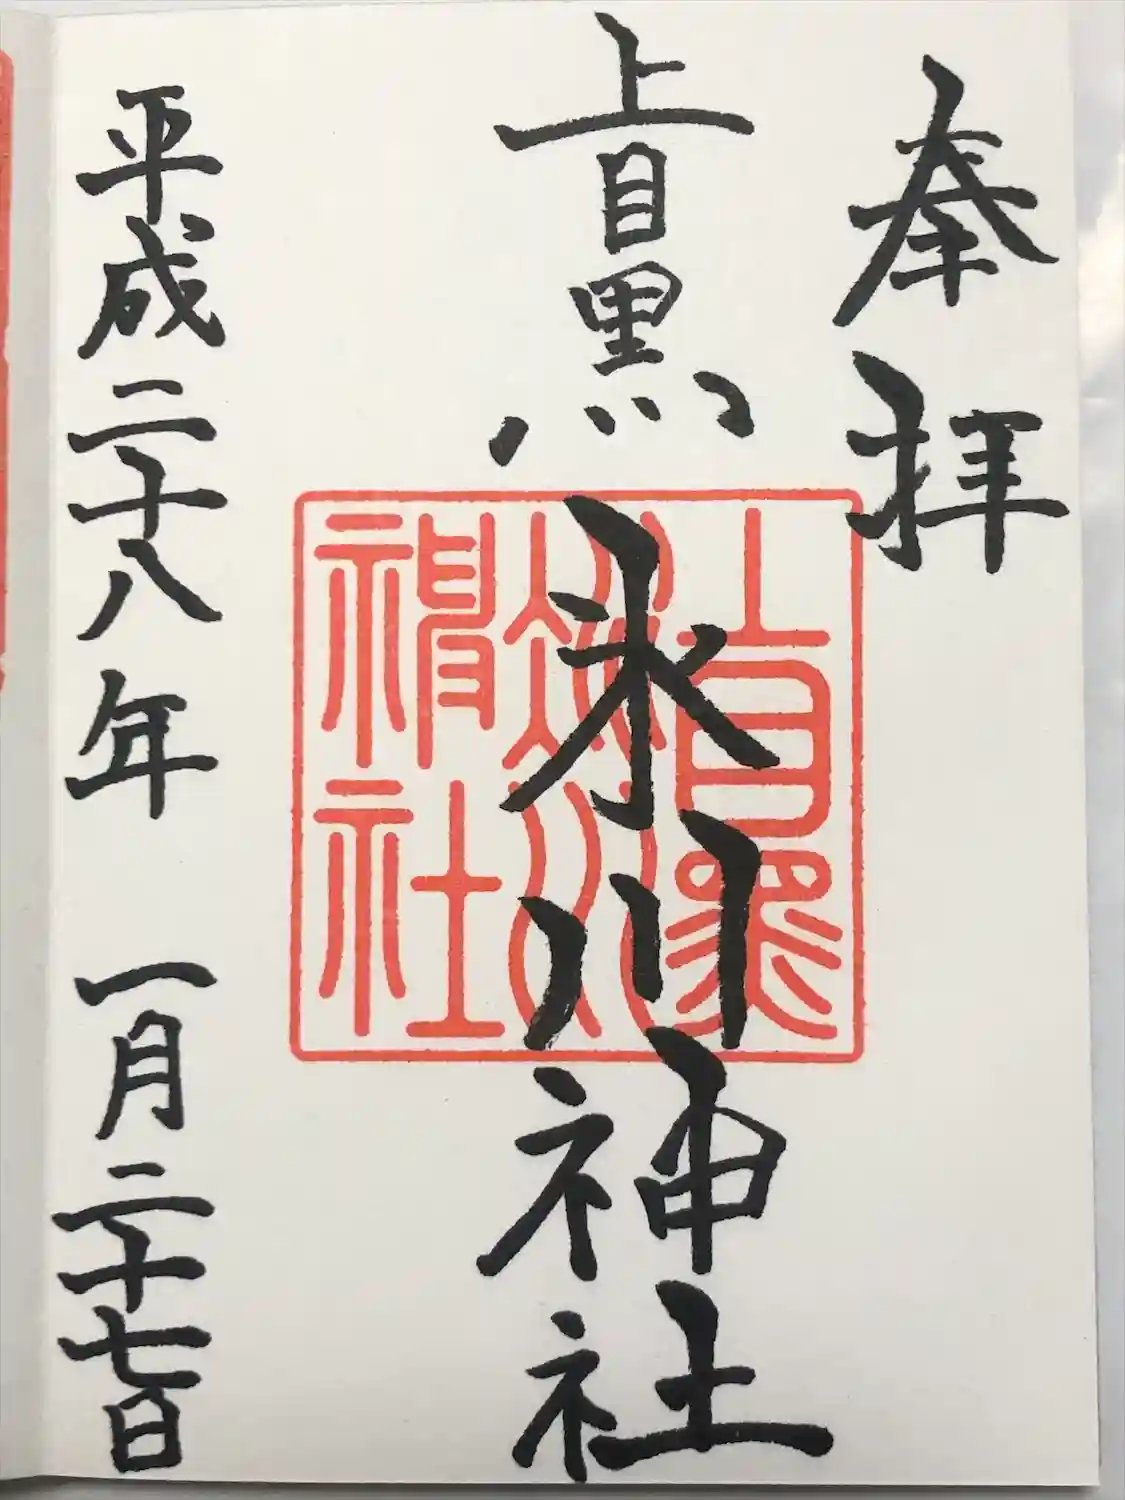 奉拝
上目黒氷川神社
上目黒
氷川
神社
平成二十八年 一月二十七日